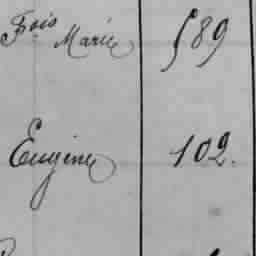 Fois Marie 589
Eugène 102.